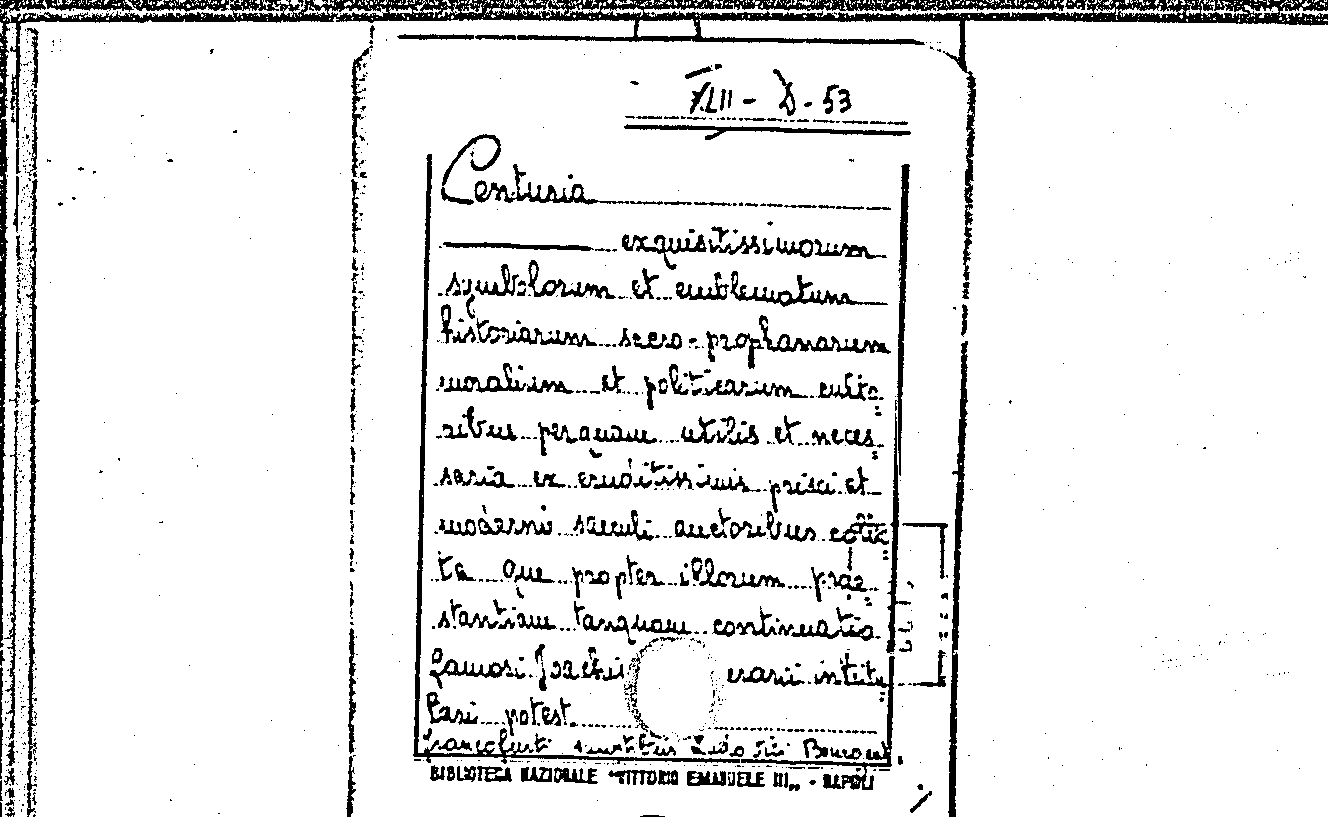 XLII - D - 53
Centuria
exquisitissimorum
symbolorum et emblematum
historiarum sacro-prophanarum
moralium et politicarum culto
ribus perquam utilis et neces
saria ex eruditissimis prisci et
moderni saeculi auctoribus
ta que propter illorum prae
stantiam tanquam continuatio
famosi
intitu
lari potest
Francofurti sumtibus
BIBLIOTECA NAZIONALE "VITTORIO EMANUELE III„ - NAPOLI